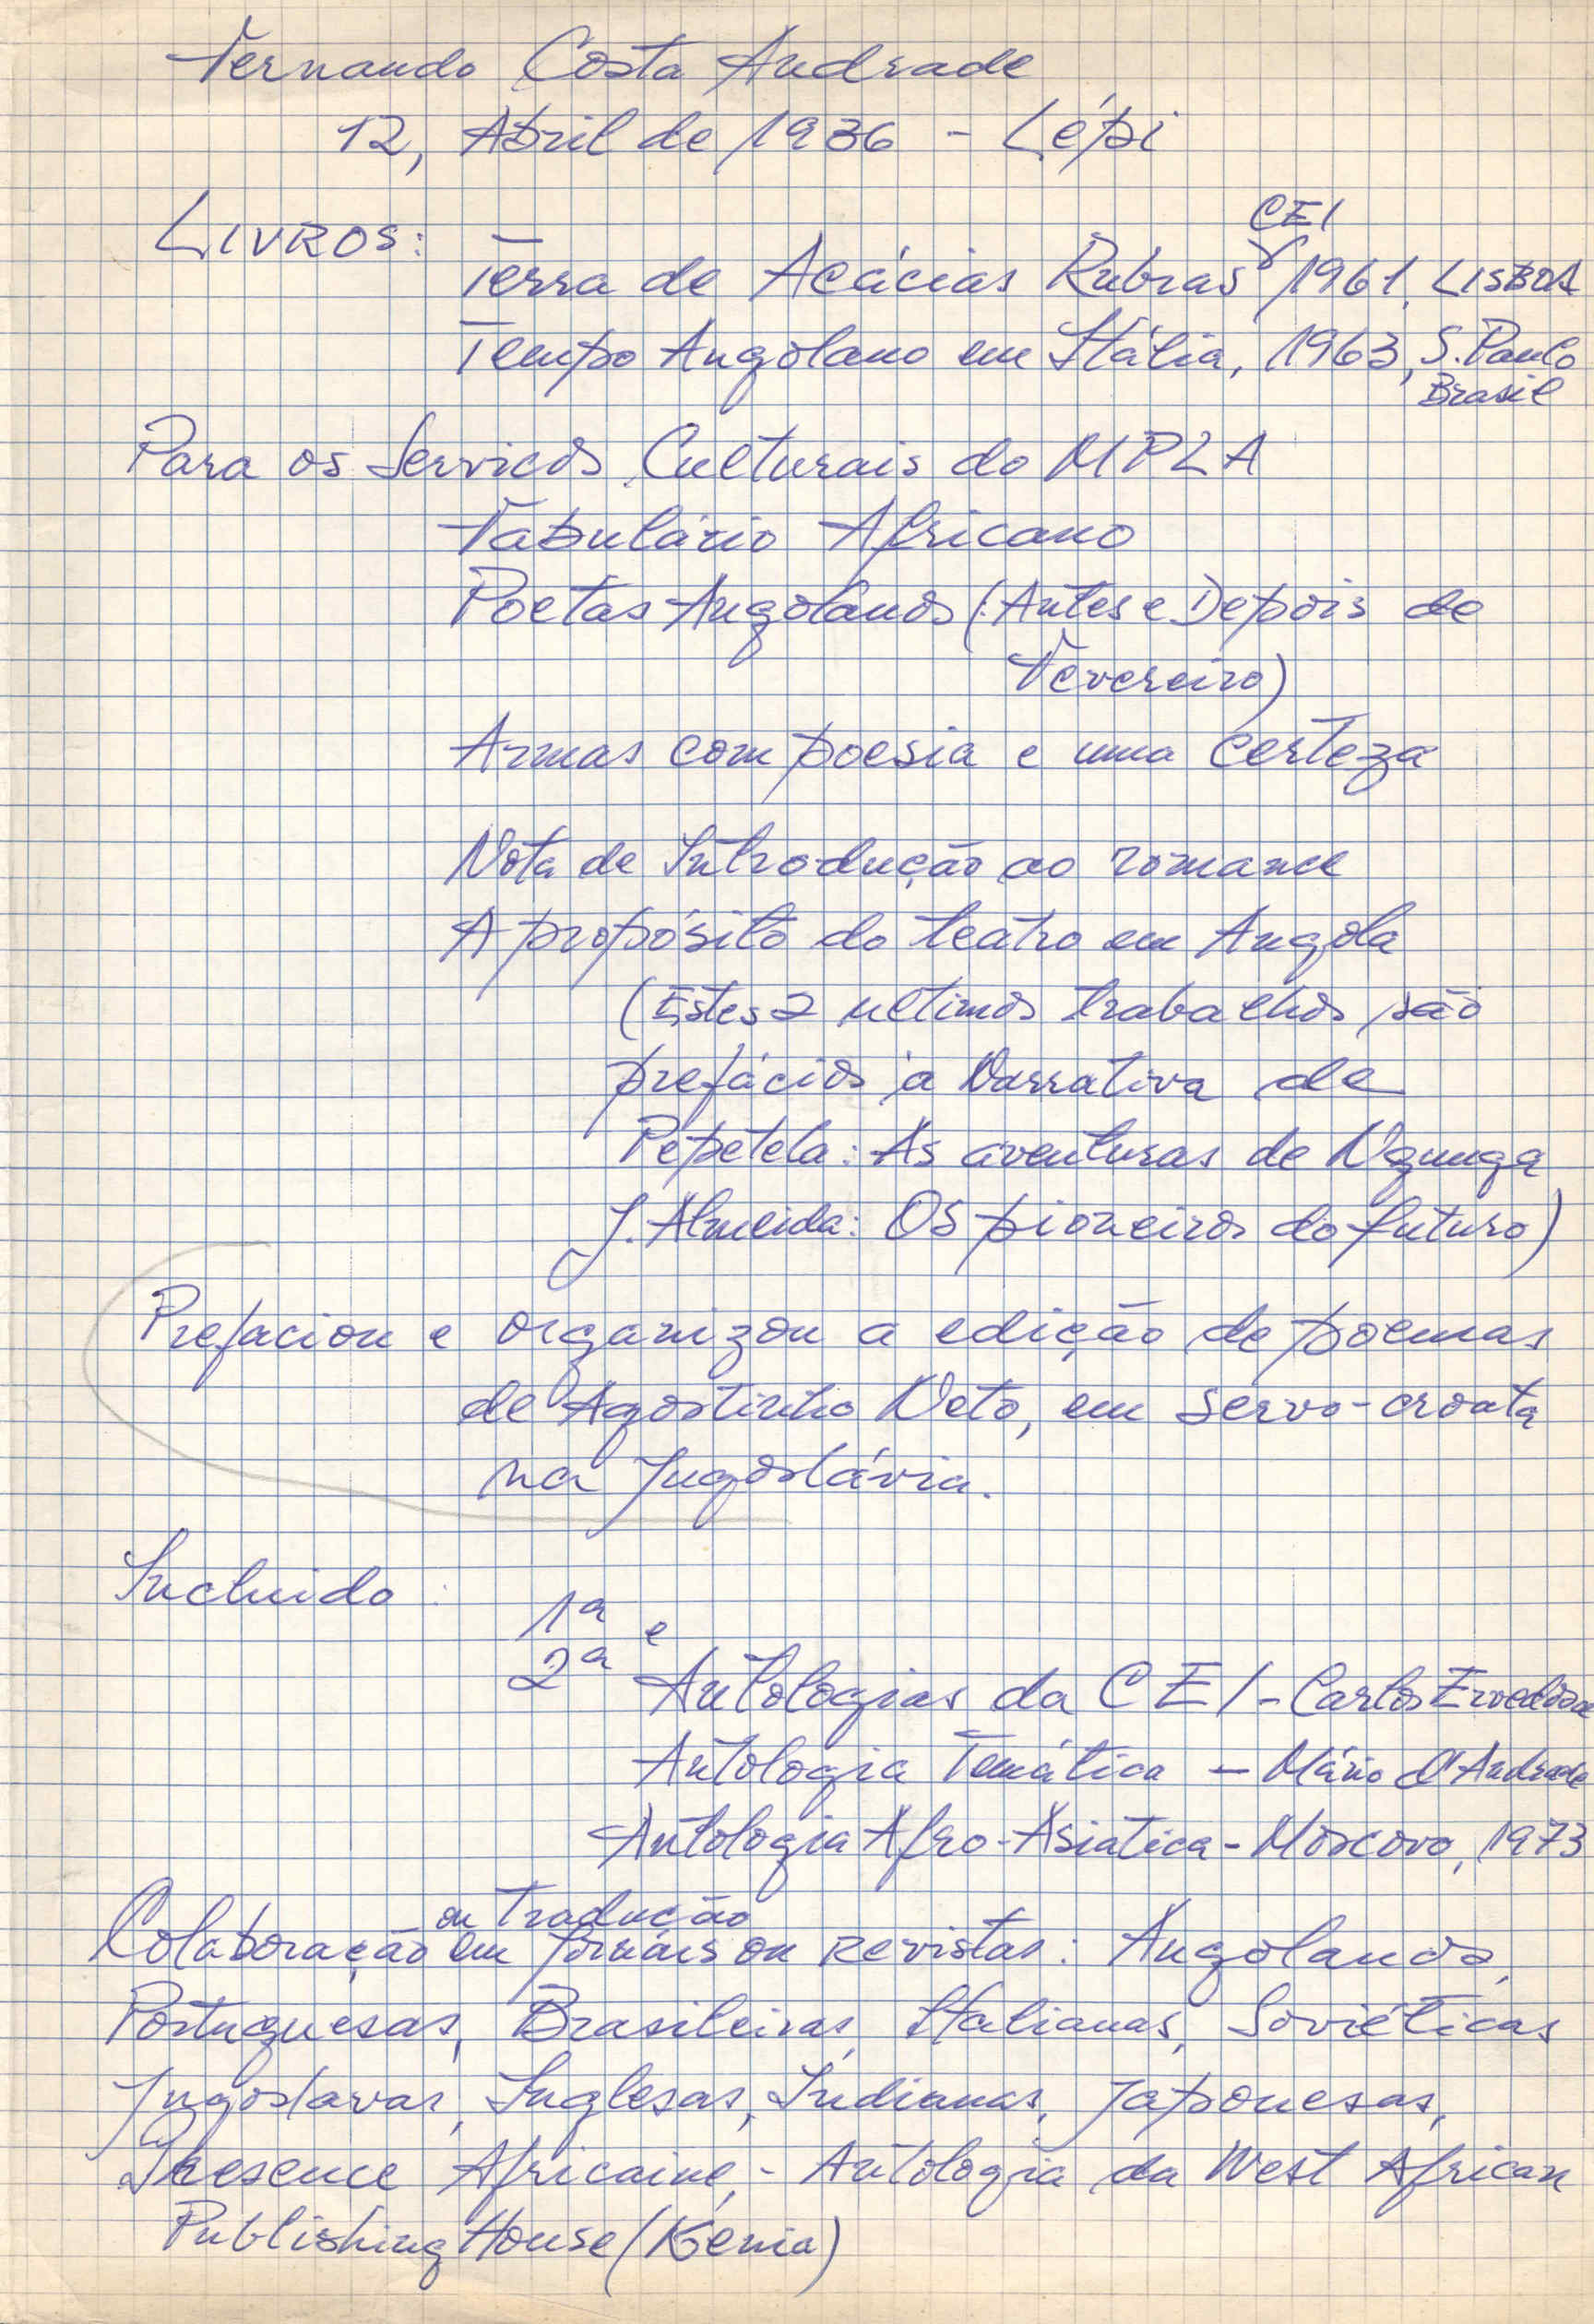 Fernando Costa Andrade
12, Abril de 1936 - Lépi
LIVROS:
CEI
Terra de Acácias Rubras, 1961, LISBOA
Tempo Angolano em Itália, 1963, S. Paulo
Brasil
Para os Serviços Culturais do MPLA
Tabulário Africano
Poetas Angolanos (Antes e Depois de
Fevereiro)
Armas com poesia e uma certeza
Nota de Introdução ao romance
A propósito do teatro em Angola
(Estes 2 ultimos trabalhos são
prefácios à Narrativa de
Pepetela: As aventuras de Ngunga
J. Almeida: Os pioneiros do futuro)
Prefaciou e organizou a edição de poemas
de Agostinho Neto, em servo-croata
na Jugoslávia.
Incluido:
1ª e
2ª Antologias da CEI - Carlos Ervedosa
Antologia Temática - Mário d'Andrade
Antologia Afro-Asiatica - Moscovo, 1973
ou Tradução
Colaboração em jornais ou revistas: Angolanas,
Portuguesas, Brasileiras, Italianas, Soviéticas
Jugoslavas, Inglesas, Indianas, Japonesas,
Presence Africaine, - Antologia da West African
Publishing House (Kenia)